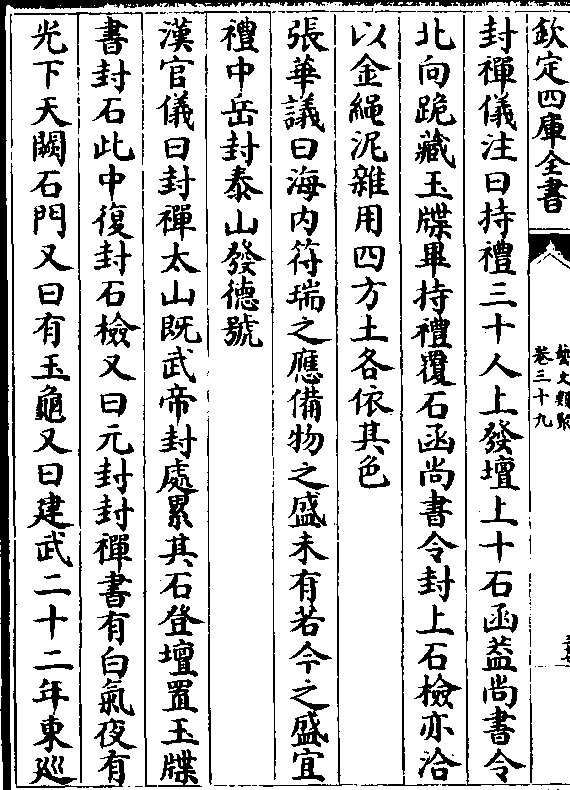 欽定四庫全書
藝文類聚
卷三十九
封禪儀注曰持禮三十人上發壇上十石函葢尚書令
北向跪藏玉牒畢持禮覆石函尚書令封上石檢亦洽
以金繩泥雜用四方土各依其色
張華議曰海内符瑞之應備物之盛未有若今之盛宜
禮中岳封泰山發德號
漢官儀曰封禪太山既武帝封處累其石登壇置玉牒
書封石此中復封石檢又曰元封封禪書有白氣夜有
光下天闕石門又曰有玉龜又曰建武二十二年東廵